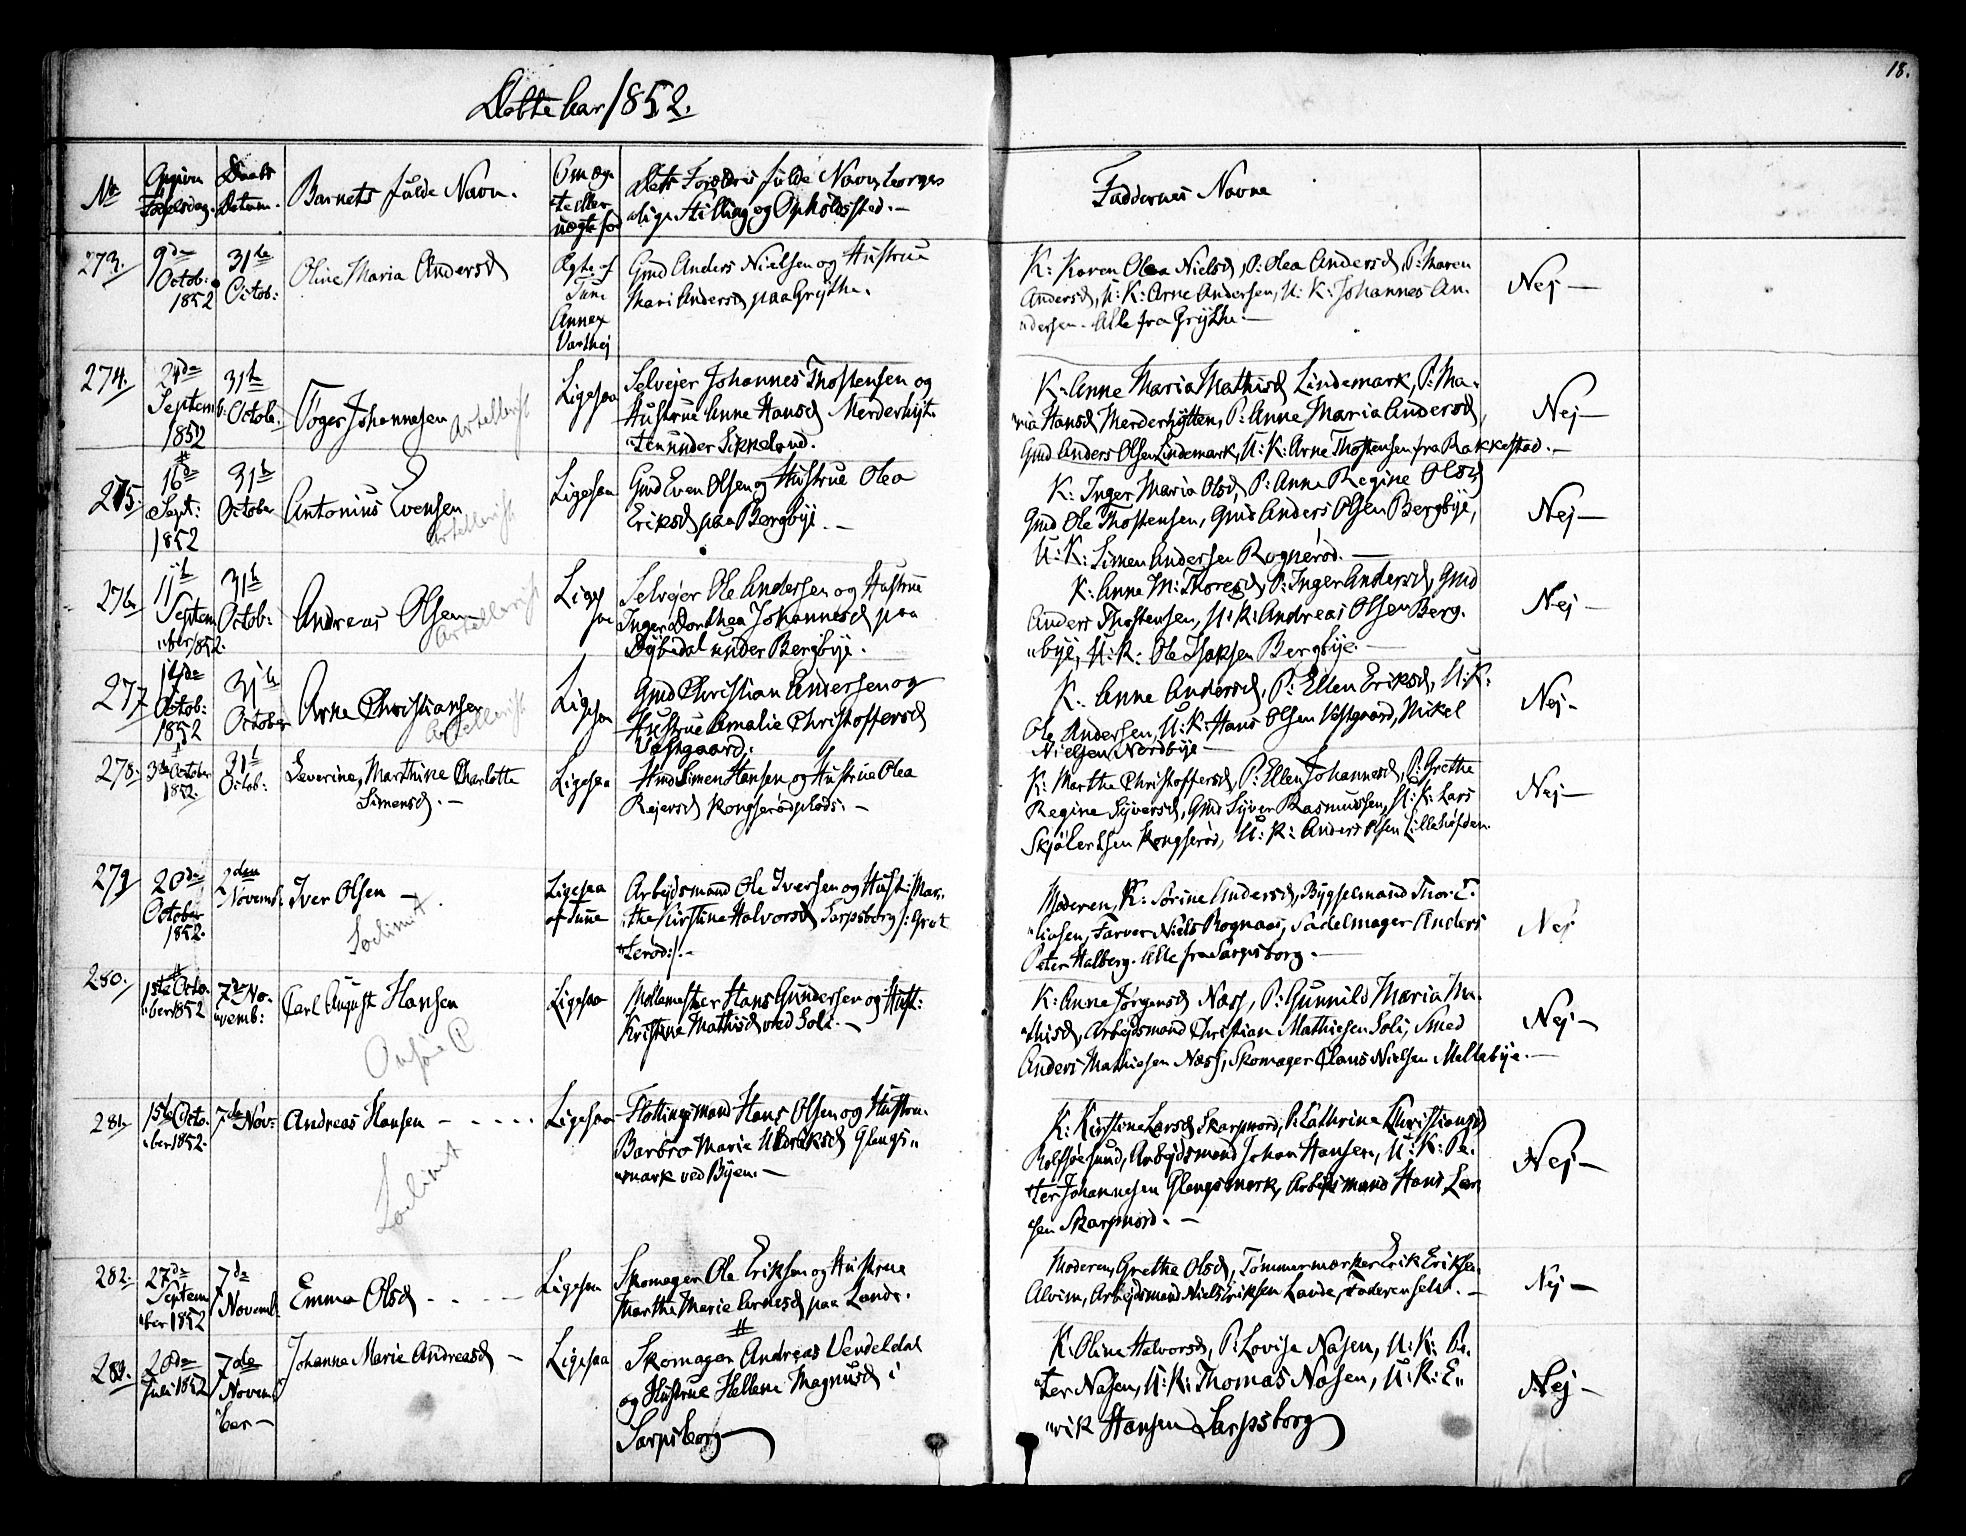 18.
Døbte har 1852.
No
Opgiven Fødselsdag.
Daabs Datum.
Barnets fulde Navn.
Om ægte eller uægte fød
Dets Forældres fulde Navn, borger-
-lige Stilling og Opholdssted. -
Faddernes Navne
273.
9de
Octob:
1852
31te
Octob:
Oline Maria Andersd
Ægte af
Tune
Annex
Varthej
Gmd Anders Nielsen og Hustrue
Mari Andersd paa Grythe.
K: Karen Olea Nielsd, P: Olea Andersd, P: Maren
Andersd, U: K: Arne Andersen, U: K: Johannes An-
-dersen. Alle fra Grythe. -
Nej -
274.
24de
Septemb:
1852
31te
Octobr.
Tøger Johannesen
Artellerist
Ligesaa
Selvejer Johannes Thostensen og
Hustrue Anne Hansd Merderhyt-
-ten under Sikkeland.
K: Anne Maria Mathisd Lindemark, P: Ma-
-ria Hansd Merderhytten, P: Anne Maria Andersd,
Gmd Anders Olsen Lindemark, U: K: Arne Thostensen fra Rakkestad. -
Nej -
275.
16de
Sept:
1852
31te
October
Antonius Evensen
Artellerist
Ligesaa
Gmd Even Olsen og Hustrue Olea
Eriksd paa Bergbye. -
K: Inger Maria Olsd, P: Anne Regine Olsd
Gmd Ole Thostensen, Gmd Anders Olsen Bergbye,
U: K: Simen Andersen Rognerød. -
Nej -
276.
11te
Septem
-ber 1852.
31te
Octob:
Andreas Olsen
Artellerist
Ligesaa
Selvejer Ole Andersen og Hustrue
Inger Dorthea Johannesd paa
Dybedal under Bergbye.
K: Anne M: Thoresd, P: Inger Andersd, Gmd
Anders Thostensen, U: K: Andreas Olsen Berg-
-bye, U: K: Ole Isaksen Bergbye. -
Nej -
277
14de
Octob:
1852
31te
October
Arne Christiansen
Artellerist
Ligesaa
Gmd Christian Andersen og
Hustrue Amalie Christoffersd
Vestgaard.
K: Anne Andersd, P: Ellen Eriksd, U: K:
Ole Andersen, U: K: Hans Olsen Vestgaard, Mikel
Nielsen Nordbye -
Nej -
278.
3die October
1852.
31te
Octob:
Severine, Marthine Charlotte
Simensd. -
Ligesaa
Hmd Simen Hansen og Hustrue Olea
Rejersd Kongserødplads. -
K: Marthe Christoffersd, P: Ellen Johannesd, P: Grethe
Regine Syversd, Gmd Syver Rasmussen, U: K: Lars
Skjølersen Kongserød, U: K: Anders Olsen Lillehøfden.
Nej -
279
20de
October
1852.
2den
Novemb:
Iver Olsen -
Ligesaa
af Tune
Arbejdsmand Ole Iversen og Hust: Mar-
-the Kirstine Halvorsd Sarpsborg /: Grot
-terød:/. -
Moderen, K: Sørine Andersd, Bygselmand Thor E-
-liasen, Farver Niels Rognaas, Sadelmager Anders
Peter Halberg. Alle fra Sarpsborg. -
Nej
280.
15te Octo-
-ber 1852
7de No-
-vemb:
Carl August Hansen
Ligesaa
Møllemester Hans Gundersen og Hust:
Kristine Mathisd ved Soli. -
K: Anne Jørgensd Næss, P: Gunnild Maria Ma-
-thisd, Arbejdsmand Christian Mathiesen Soli, Smed
Anders Mathiesen Næss, Skomager Claus Nielsen Mellebye. -
Nej -
281.
15te Octo-
-ber 1852.
7de Nov:
Andreas Hansen - - - - -
Ligesaa
Flottingsmand Hans Olsen og Hustru
Barbro Marie Ulriksd Glengs-
-mark ved Byen. -
K: Kirstine Larsd Skarpnord, P: Cathrine Christiansd
Rolfsøesund, Arbejdsmand Johan Hansen, U: K: Pe-
-ter Johannesen Glengsmark, Arbejdsmand Hans Lar-
-sen Skarpnord. -
Nej -
282.
27de
Septem
-ber 1852
7de
Novemb
Emma Olsd - - - -
Ligesaa
Skomager Ole Eriksen og Hustrue
Marthe Marie Arnesd paa Lande.
Moderen, Grethe Olsd, Tømmermærker Erik Eriksen
Alvim, Arbejdsmand Niels Eriksen Lande, Faderen selv. -
Nej -
283.
20de
Juli 1852
7de
Novem-
-ber -
Johanne Marie Andreasd -
Ligesaa
Skomager Andreas Vendeldal
og Hustrue Hellene Magnusd i
Sarpsborg
K: Oline Halvorsd, P: Lovise Nasen, U: K: Pe-
-ter Nasen, U: K: Thomas Nasen, U: K: E-
-rik Hansen Sarpsborg
Nej -